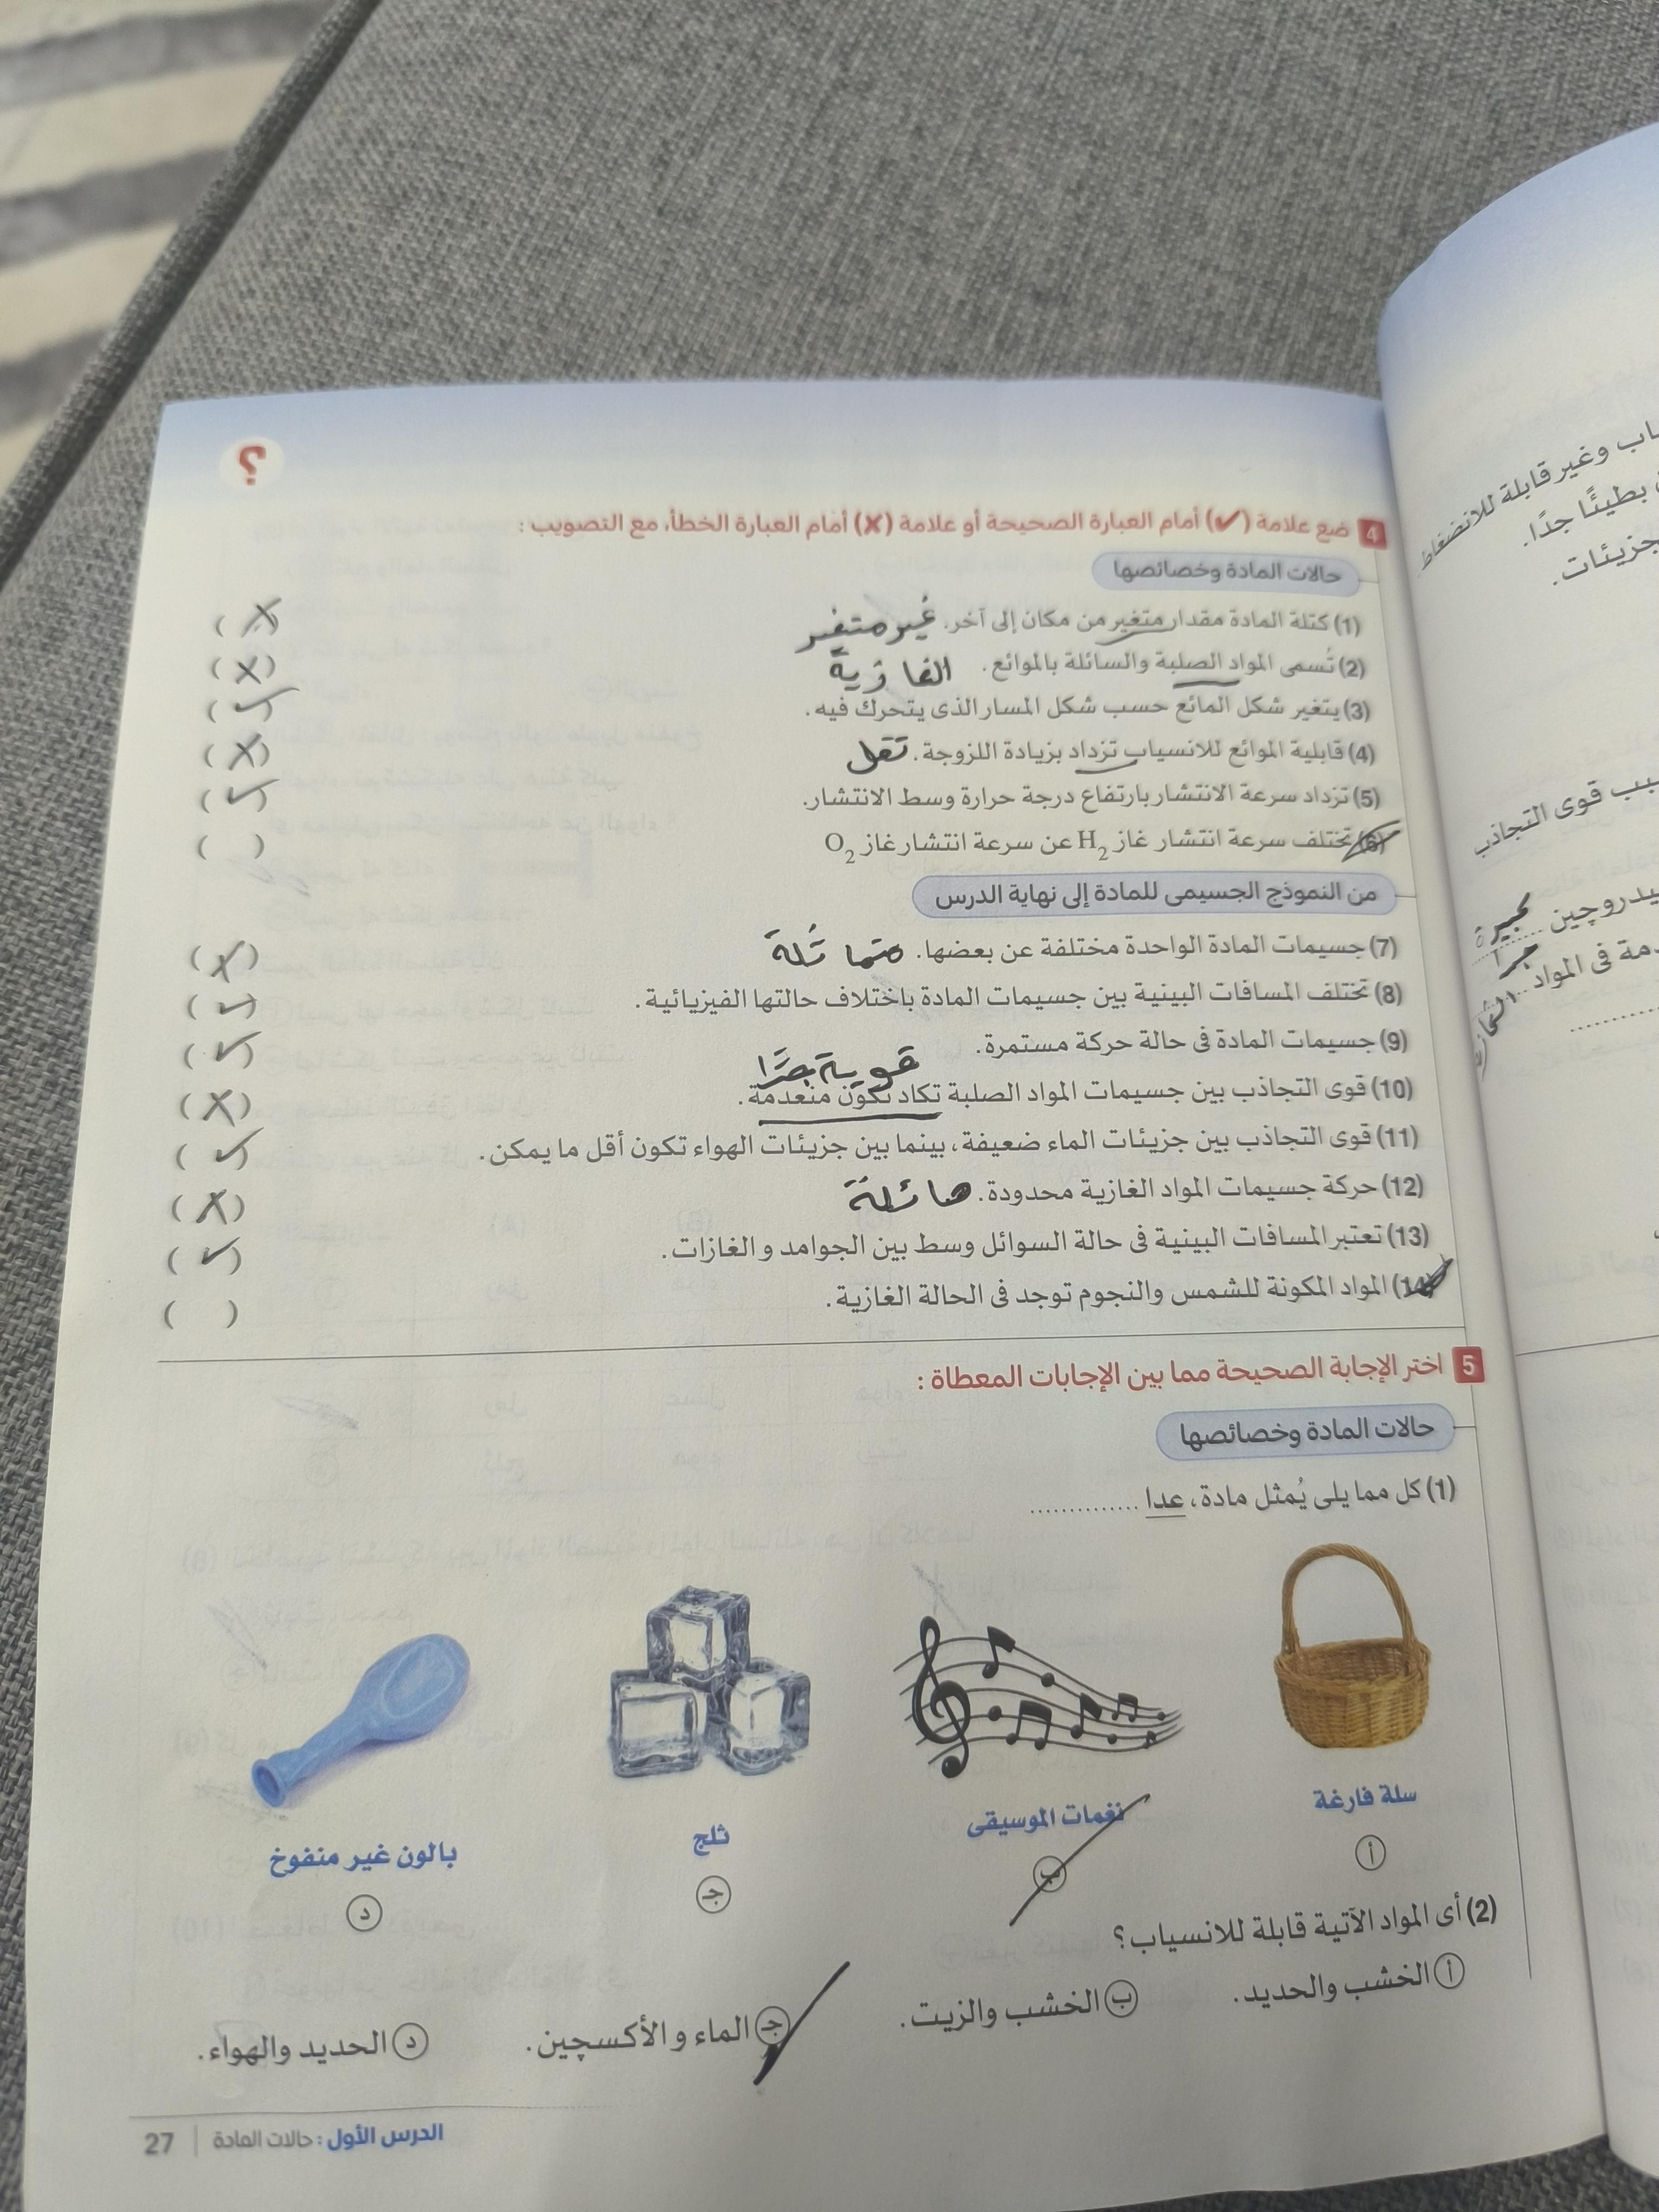 ؟
4 ضع علامة (✔) أمام العبارة الصحيحة أو علامة (✘) أمام العبارة الخطأ، مع التصويب :
حالات المادة وخصائصها
(1) كتلة المادة مقدار متغير من مكان إلى آخر. غير متغير (X)
(2) تُسمى المواد الصلبة والسائلة بالموائع. الغازية (X)
(3) يتغير شكل المائع حسب شكل المسار الذى يتحرك فيه. (✓)
(4) قابلية الموائع للانسياب تزداد بزيادة اللزوجة. تقل (X)
(5) تزداد سرعة الانتشار بارتفاع درجة حرارة وسط الانتشار. (✓)
(6) تختلف سرعة انتشار غاز H2 عن سرعة انتشار غاز O2 ( )
من النموذج الجسيمى للمادة إلى نهاية الدرس
(7) جسيمات المادة الواحدة مختلفة عن بعضها. متماثلة (X)
(8) تختلف المسافات البينية بين جسيمات المادة باختلاف حالتها الفيزيائية. (✓)
(9) جسيمات المادة فى حالة حركة مستمرة. (✓)
قوية جدًا
(10) قوى التجاذب بين جسيمات المواد الصلبة تكاد تكون منعدمة. (X)
(11) قوى التجاذب بين جزيئات الماء ضعيفة، بينما بين جزيئات الهواء تكون أقل ما يمكن. (✓)
(12) حركة جسيمات المواد الغازية محدودة. هائلة (X)
(13) تعتبر المسافات البينية فى حالة السوائل وسط بين الجوامد والغازات. (✓)
(14) المواد المكونة للشمس والنجوم توجد فى الحالة الغازية. ( )
5 اختر الإجابة الصحيحة مما بين الإجابات المعطاة :
حالات المادة وخصائصها
(1) كل مما يلى يُمثل مادة، عدا ..............
سلة فارغة نغمات الموسيقى ثلج بالون غير منفوخ
أ ب جـ د
(2) أى المواد الآتية قابلة للانسياب؟
أ الخشب والحديد. ب الخشب والزيت. جـ الماء والأكسچين. د الحديد والهواء.
الدرس الأول : حالات المادة | 27
وغير قابلة للانضغاط
بطيئًا جدًا.
جزيئات.
قوى التجاذب
كبيرة
جدًا
فى المواد